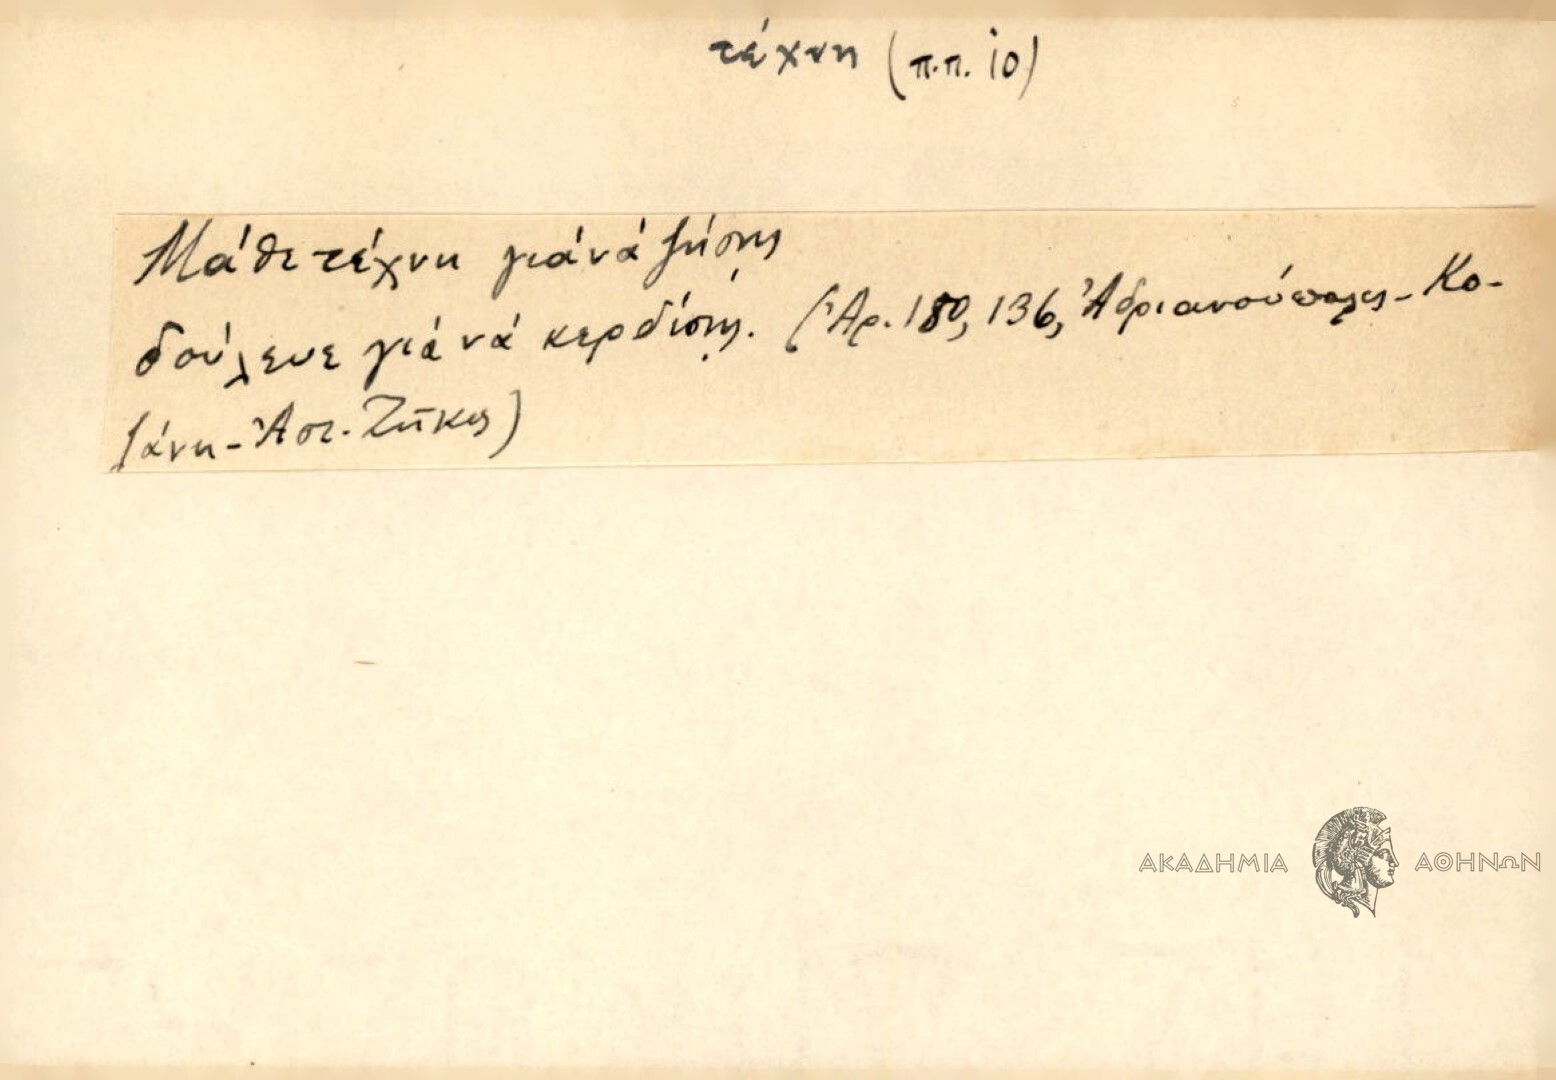 τέχνη (π.π. 10)
Μάθε τέχνη γιά νά ζήσης
δούλευε γιά νά κερδίσης. (Ἀρ. 180, 136, Ἀδριανούπολις - Κο-
ζάνη - Ἀστ. Ζῆκος)
ΑΚΑΔΗΜΙΑ ΑΘΗΝΩΝ